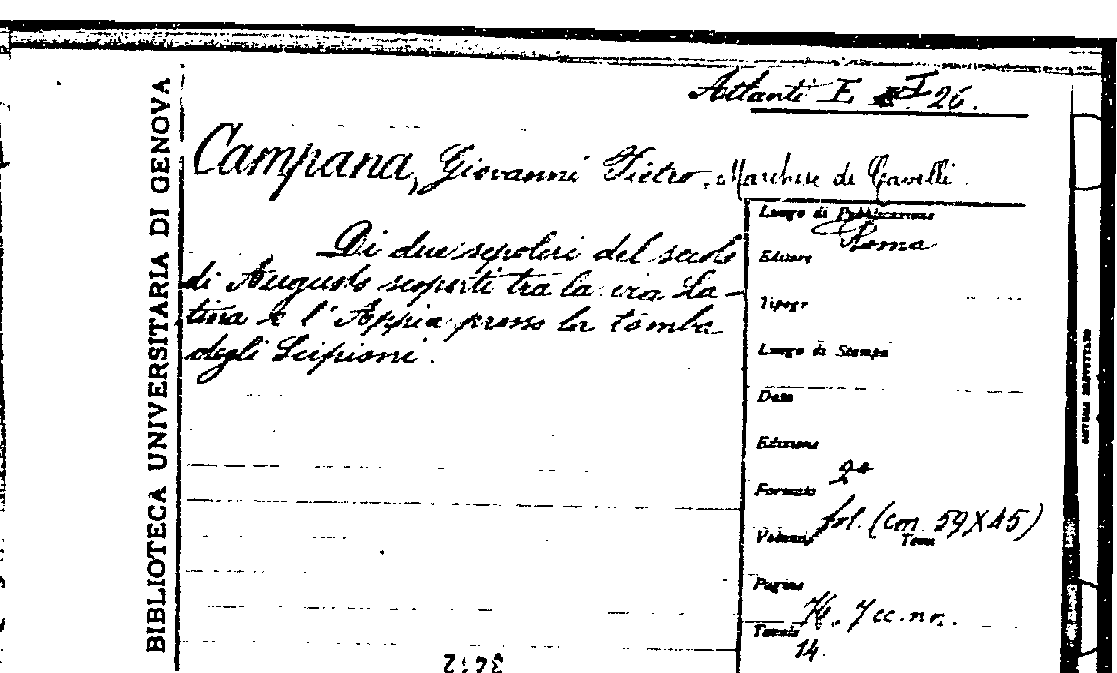 Atlanti E I 26.
Campana, Giovanni Pietro, Marchese di Cavelli.
Di due sepolcri del secolo
di Augusto scoperti tra la via La-
tina e l'Appia presso la tomba
degli Scipioni.
Luogo di Pubblicazione
Roma
Editore
Tipogr
Luogo di Stampa
Data
Edizione
Formato 2°
fol. (cm 59X45)
Volumi Tomi
Pagine
H. 7 cc. nn.
Tavole
14.
BIBLIOTECA UNIVERSITARIA DI GENOVA